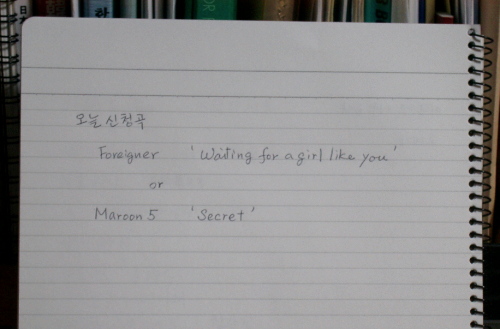 오늘 신청곡
Foreigner 'Waiting for a girl like you'
or
Maroon 5 'Secret'